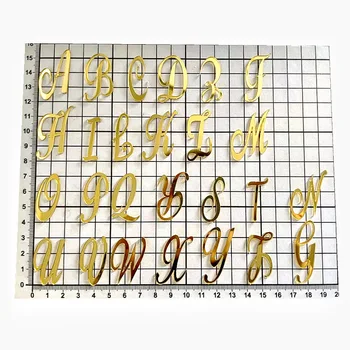 16
15
14
A B C D E F
13
12
11
10
H I J K L M
9
8
7
6
O P Q R S T N
5
4
3
2
U V W X Y Z G
1
0
0 1 2 3 4 5 6 7 8 9 10 11 12 13 14 15 16 17 18 19